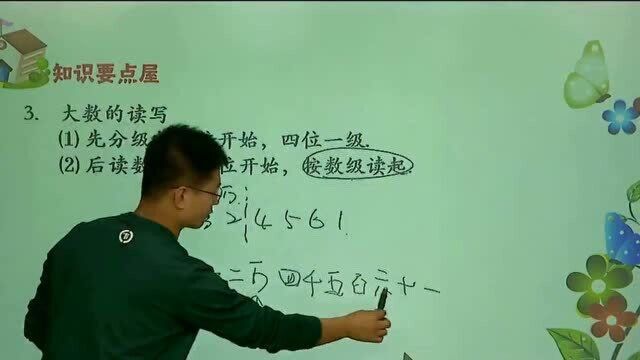 知识要点屋
3. 大数的读写
(1) 先分级 开始，四位一级.
(2) 后读数 位开始，按数级读起.
万
2 4 5 6 1
二万 四千五百六十一